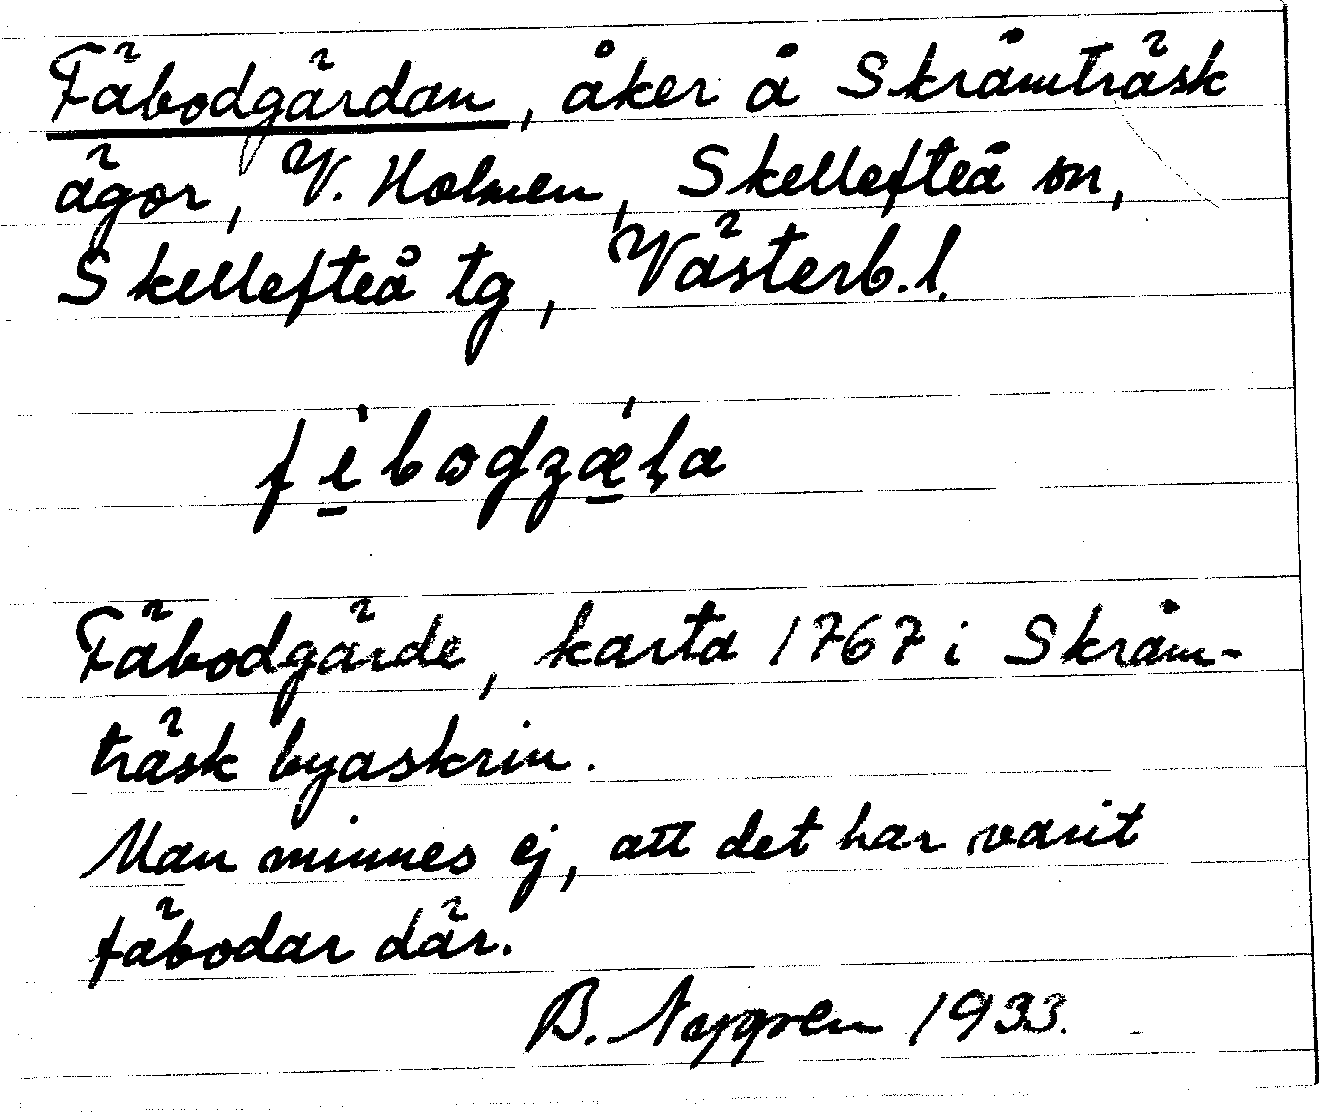 Fäbodgärdan, åker å Skråmträsk
ägor, V. Holmen, Skellefteå sn,
Skellefteå tg, Västerb. l.
Fäbodgärde, karta 1767 i Skråm-
träsk byaskrin.
Man minnes ej, att det har varit
fäbodar där.
B. Nygren 1933.